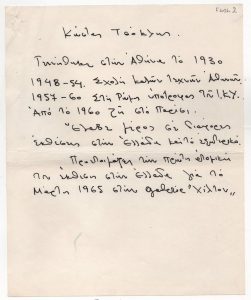 Κώστας Τσόκλης.
Γεννήθηκε στην Αθήνα το 1930
1948-54. Σχολή Καλών Τεχνών Αθηνών
1957-60 Στη Ρώμη υπότροφος του Ι.Κ.Υ.
Από το 1960 ζη στο Παρίσι.
Έλαβε μέρος σε διάφορες
εκθέσεις στην Ελλάδα και το εξωτερικό.
Προετοιμάζει την πρώτη ατομική
του έκθεση στην Ελλάδα για το
Μάρτη 1965 στην Χίλτον„